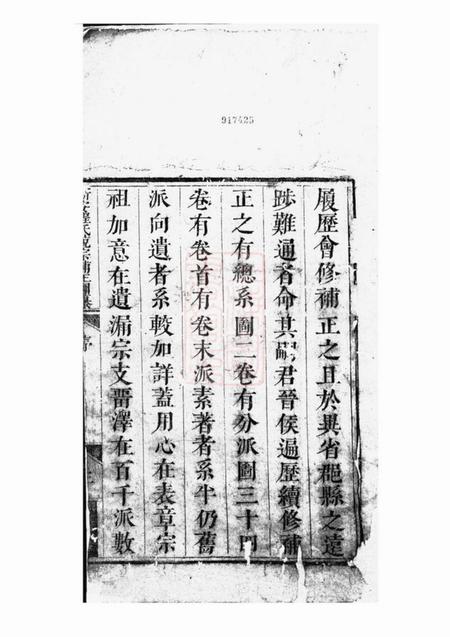 917425
履歷會修補正之且於異省郡縣之遠
跡難遍者命其嗣君晉侯遍歷續修補
正之有總系圖二卷有分派圖三十四
卷有卷首有卷末派素著者系牛仍舊
派向遺者系較加詳蓋用心在表章宗
祖加意在遺漏宗支畱澤在百千派數
氏統宗補正圖纂
序